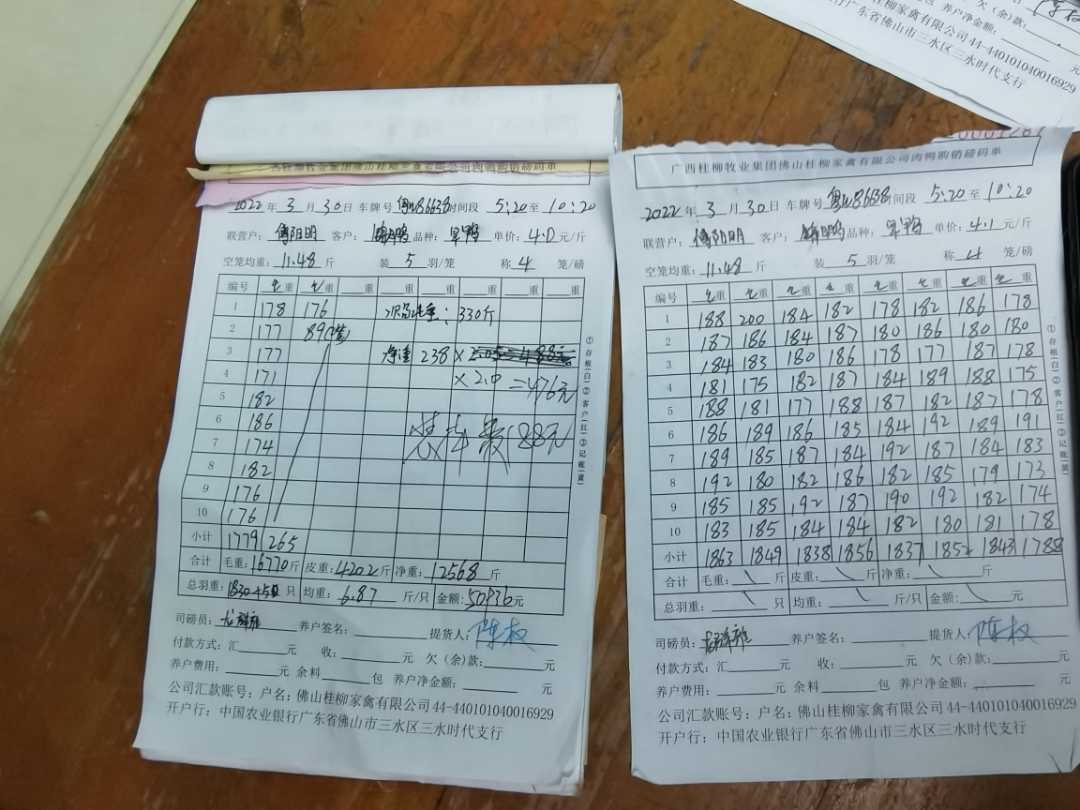 养户净金额:
欠(余)款:
元
桂柳家禽有限公司44-440101040016929
行广东省佛山市三水区三水时代支行
2022年3月30日 车牌号 粤W86638 时间段 5:20至10:20
联营户: 傅阳明 客户: 品种: 旱鸭 单价: 4.0元/斤
空笼均重: 11.48斤 装 5 羽/笼 称 4 笼/磅
编号 毛重 毛重 重 重 重 重 重 重
1 178 176 330斤
2 177 89
3 177 净重 238 ×
4 171 ×2.0=476元
5 182
6 186 188元
7 174
8 182
9 176
10 176
小计 1779 265
合计 毛重: 16770斤 皮重: 4202斤 净重: 12568斤
总羽重: 1830 只 均重: 6.87 斤/只 金额: 50936元
司磅员: 养户签名: 提货人: 陈权
付款方式: 汇 元 收: 元 欠(余)款: 元
养户费用: 元 余料 包 养户净金额: 元
公司汇款账号: 户名: 佛山桂柳家禽有限公司44-440101040016929
开户行: 中国农业银行广东省佛山市三水区三水时代支行
①存根(白)②客户(红)③记账(黄)
广西桂柳牧业集团佛山桂柳家禽有限公司肉鸭购销磅码单
2022年3月30日 车牌号 粤W86638 时间段 5:20至10:20
联营户: 傅阳明 客户: 品种: 旱鸭 单价: 4.1元/斤
空笼均重: 11.48斤 装 5 羽/笼 称 4 笼/磅
编号 毛重 毛重 毛重 毛重 毛重 毛重 毛重 毛重
1 188 200 184 182 178 182 186 178
2 187 186 184 187 180 186 180 180
3 184 183 180 186 178 177 187 178
4 181 175 182 187 184 189 188 175
5 188 181 177 188 187 182 187 178
6 186 189 186 185 184 192 189 191
7 189 185 187 184 192 187 184 183
8 192 180 182 186 182 185 179 173
9 185 185 192 187 190 192 182 174
10 183 185 184 184 182 180 181 178
小计 1863 1849 1838 1856 1837 1852 1843 1788
合计 毛重: 斤 皮重: 斤 净重: 斤
总羽重: 只 均重: 斤/只 金额: 元
司磅员: 养户签名: 提货人: 陈权
付款方式: 汇 元 收: 元 欠(余)款: 元
养户费用: 元 余料 包 养户净金额: 元
公司汇款账号: 户名: 佛山桂柳家禽有限公司44-440101040016929
开户行: 中国农业银行广东省佛山市三水区三水时代支行
①存根(白)②客户(红)③记账(黄)